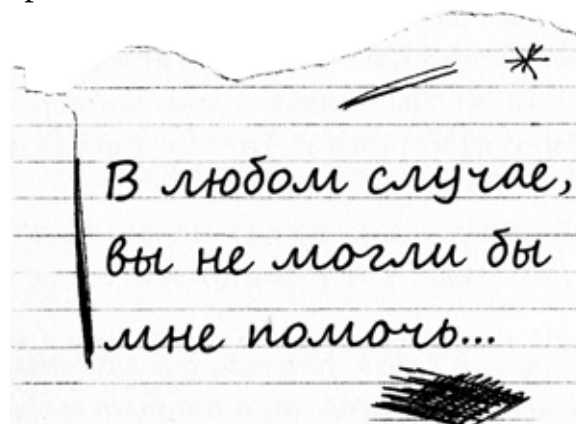 В любом случае,
вы не могли бы
мне помочь...